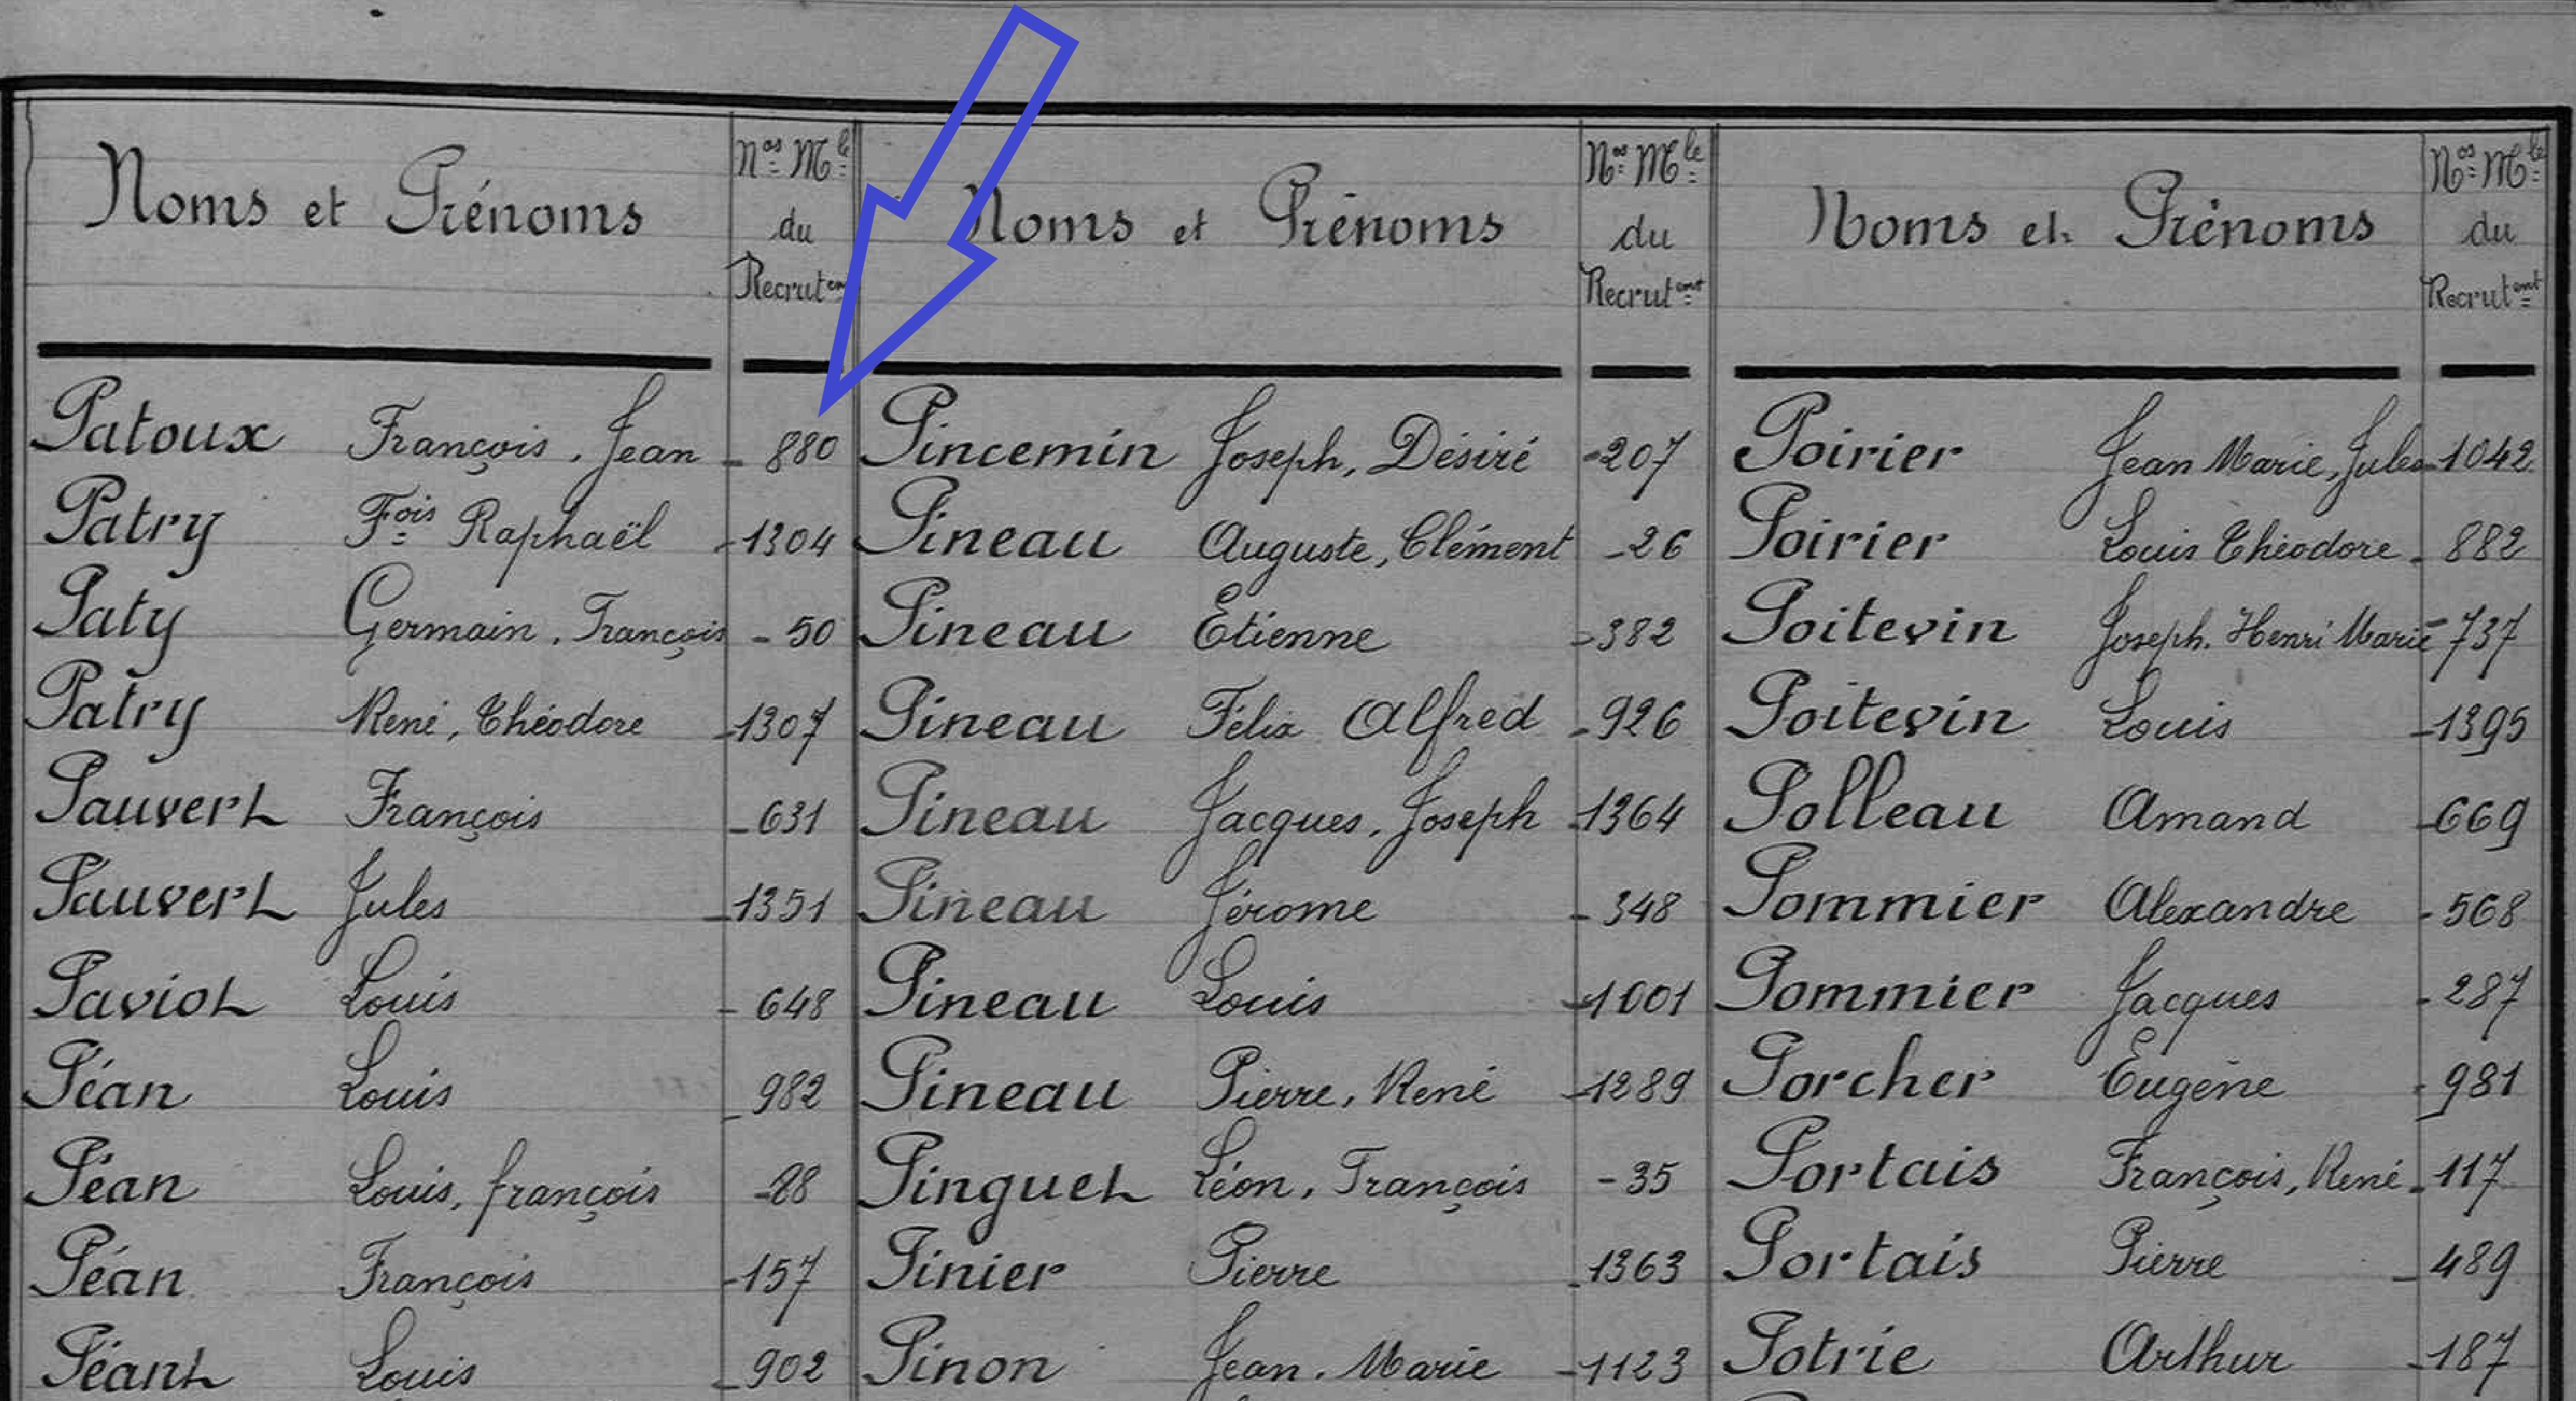 Noms et Prénoms Nos Mle du Recrutem Noms et Prénoms Nos Mle du Recrutemt Noms et Prénoms Nos Mle du Recrutemt
Patoux François, Jean - 880 Pincemin Joseph, Désiré - 207 Poirier Jean Marie, Jules - 1042
Patry Fois Raphaël - 1304 Pineau Auguste, Clément - 26 Poirier Louis Théodore - 882
Paty Germain, François - 50 Pineau Etienne - 382 Poitevin Joseph. Henri Marie - 737
Patry René, Théodore - 1307 Pineau Félix Alfred - 926 Poitevin Louis - 1395
Pauvert François - 631 Pineau Jacques, Joseph - 1364 Polleau Amand - 669
Pauvert Jules - 1351 Pineau Jérome - 348 Pommier Alexandre - 568
Paviot Louis - 648 Pineau Louis - 1001 Pommier Jacques - 287
Péan Louis - 982 Pineau Pierre, René - 1289 Porcher Eugène - 981
Péan Louis, françois - 28 Pinguet Léon, François - 35 Portais François, René - 117
Péan François - 157 Pinier Pierre - 1363 Portais Pierre - 489
Péant Louis - 902 Pinon Jean. Marie - 1123 Potrie Arthur - 187